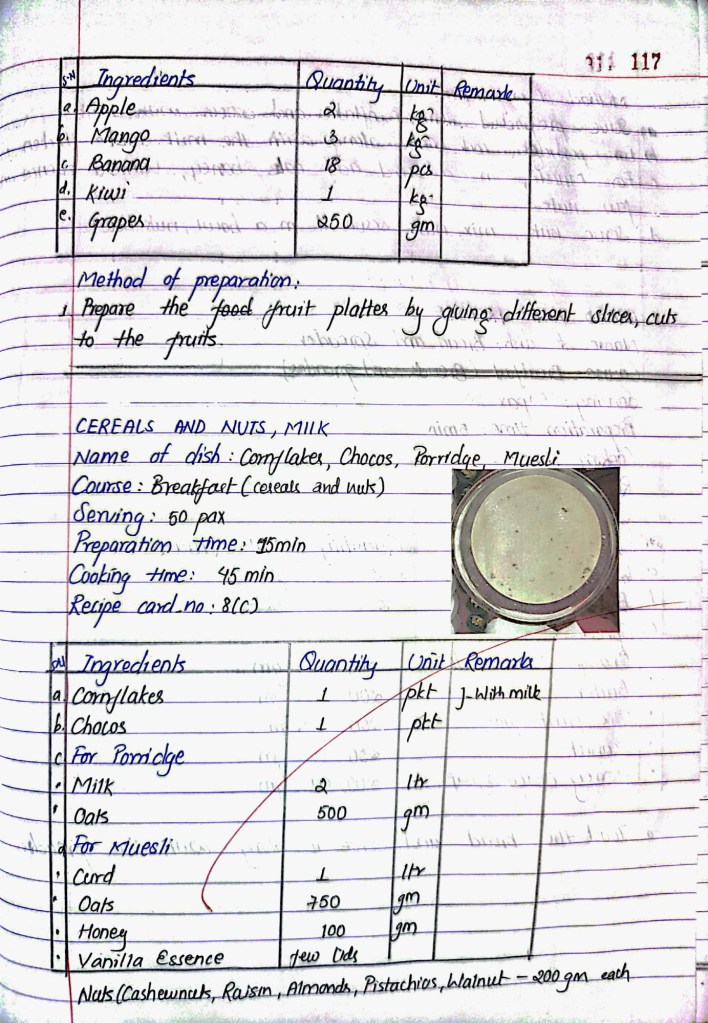 117
S.N Ingredients Quantity Unit Remark
a. Apple 2 kg
b. Mango 3 kg
c. Banana 18 pcs
d. Kiwi 1 kg
e. Grapes 250 gm
Method of preparation:
1 Prepare the food fruit platter by giving different slices, cuts
to the fruits.
CEREALS AND NUTS, MILK
Name of dish: Cornflakes, Chocos, Porridge, Muesli
Course: Breakfast (cereals and nuts)
Serving: 50 pax
Preparation time: 15min
Cooking time: 45 min
Recipe card no: 8(C)
S.N Ingredients Quantity Unit Remark
a. Cornflakes 1 pkt }-With milk
b. Chocos 1 pkt
c For Porridge
• Milk 2 ltr
• Oats 500 gm
d For Muesli
• Curd 1 ltr
• Oats 750 gm
• Honey 100 gm
• Vanilla Essence few
Nuts (Cashewnuts, Raisin, Almonds, Pistachios, Walnut - 200 gm each